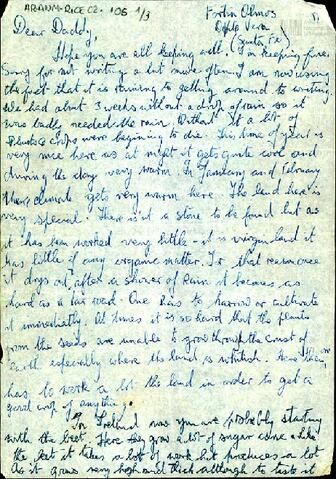 ARANM-RICE 02-106 1/3
Fortin Olmos
Dear Daddy,
Dpto Vera
(Santa Fe)
Hope you are all keeping well. I'm keeping fine.
Sorry for not writing a bit more often. I am now using
the fact that it is raining to getting around to writing.
We had about 3 weeks without a drop of rain so it
was badly needed the rain. Without it a lot of
crops were begining to die. This time of year is
very nice here as at night it gets quite cool and
during the day very warm. In January and February
the climate gets very warm here. The land here is
very special. There isn't a stone to be found but as
it has been worked very little - it is virgin land it
has little if any organic matter. For that reason once
it dries out after a shower of rain it becomes as
hard as a tar road. One has to harrow or cultivate
it immediatly. At times it is so hard that the plants
from the seeds are unable to grow through the crust of
earth especially where the land is whitish. One
has to work a lot the land in order to get a
good crop of anything.
In Ireland now you are probably starting
with the beet. Here they grow a lot of sugar cane & like
the beet it takes a lot of work but produces a lot
As it grows very high and thick although to taste it